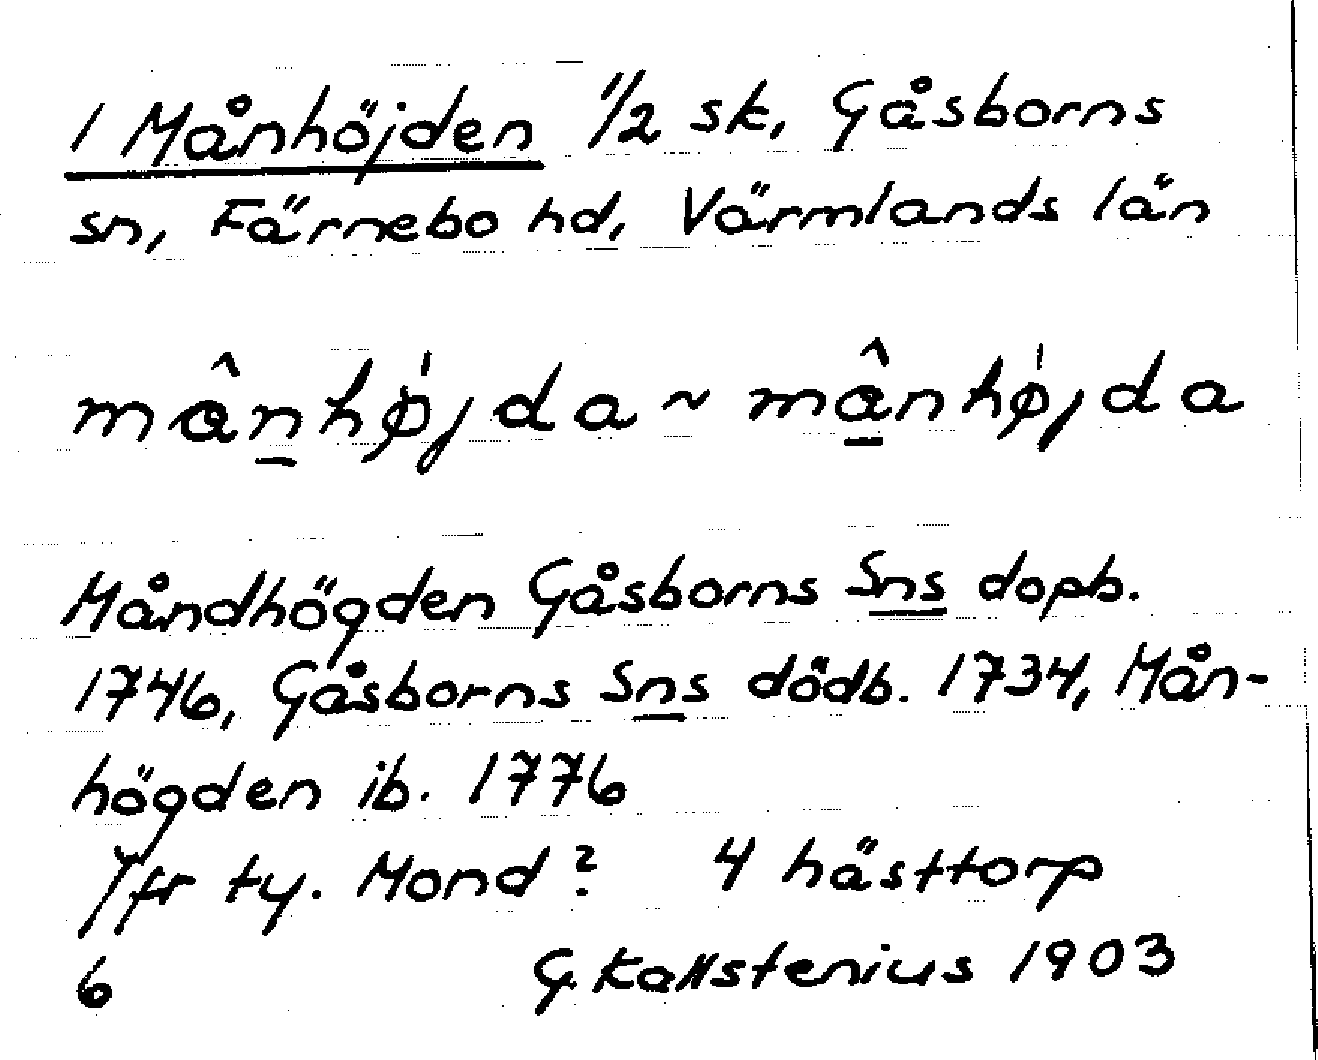 1 Månhöjden 1/2 sk, Gåsborns
sn, Färnebo hd, Värmlands län
mânhø̍jda ~ mânhø̍jda
Måndhögden Gåsborns Sns dopb.
1746, Gåsborns Sns dödb. 1734, Mån-
högden ib. 1776
Jfr ty. Mond? 4 hästtorp
6 G. Kallstenius 1903